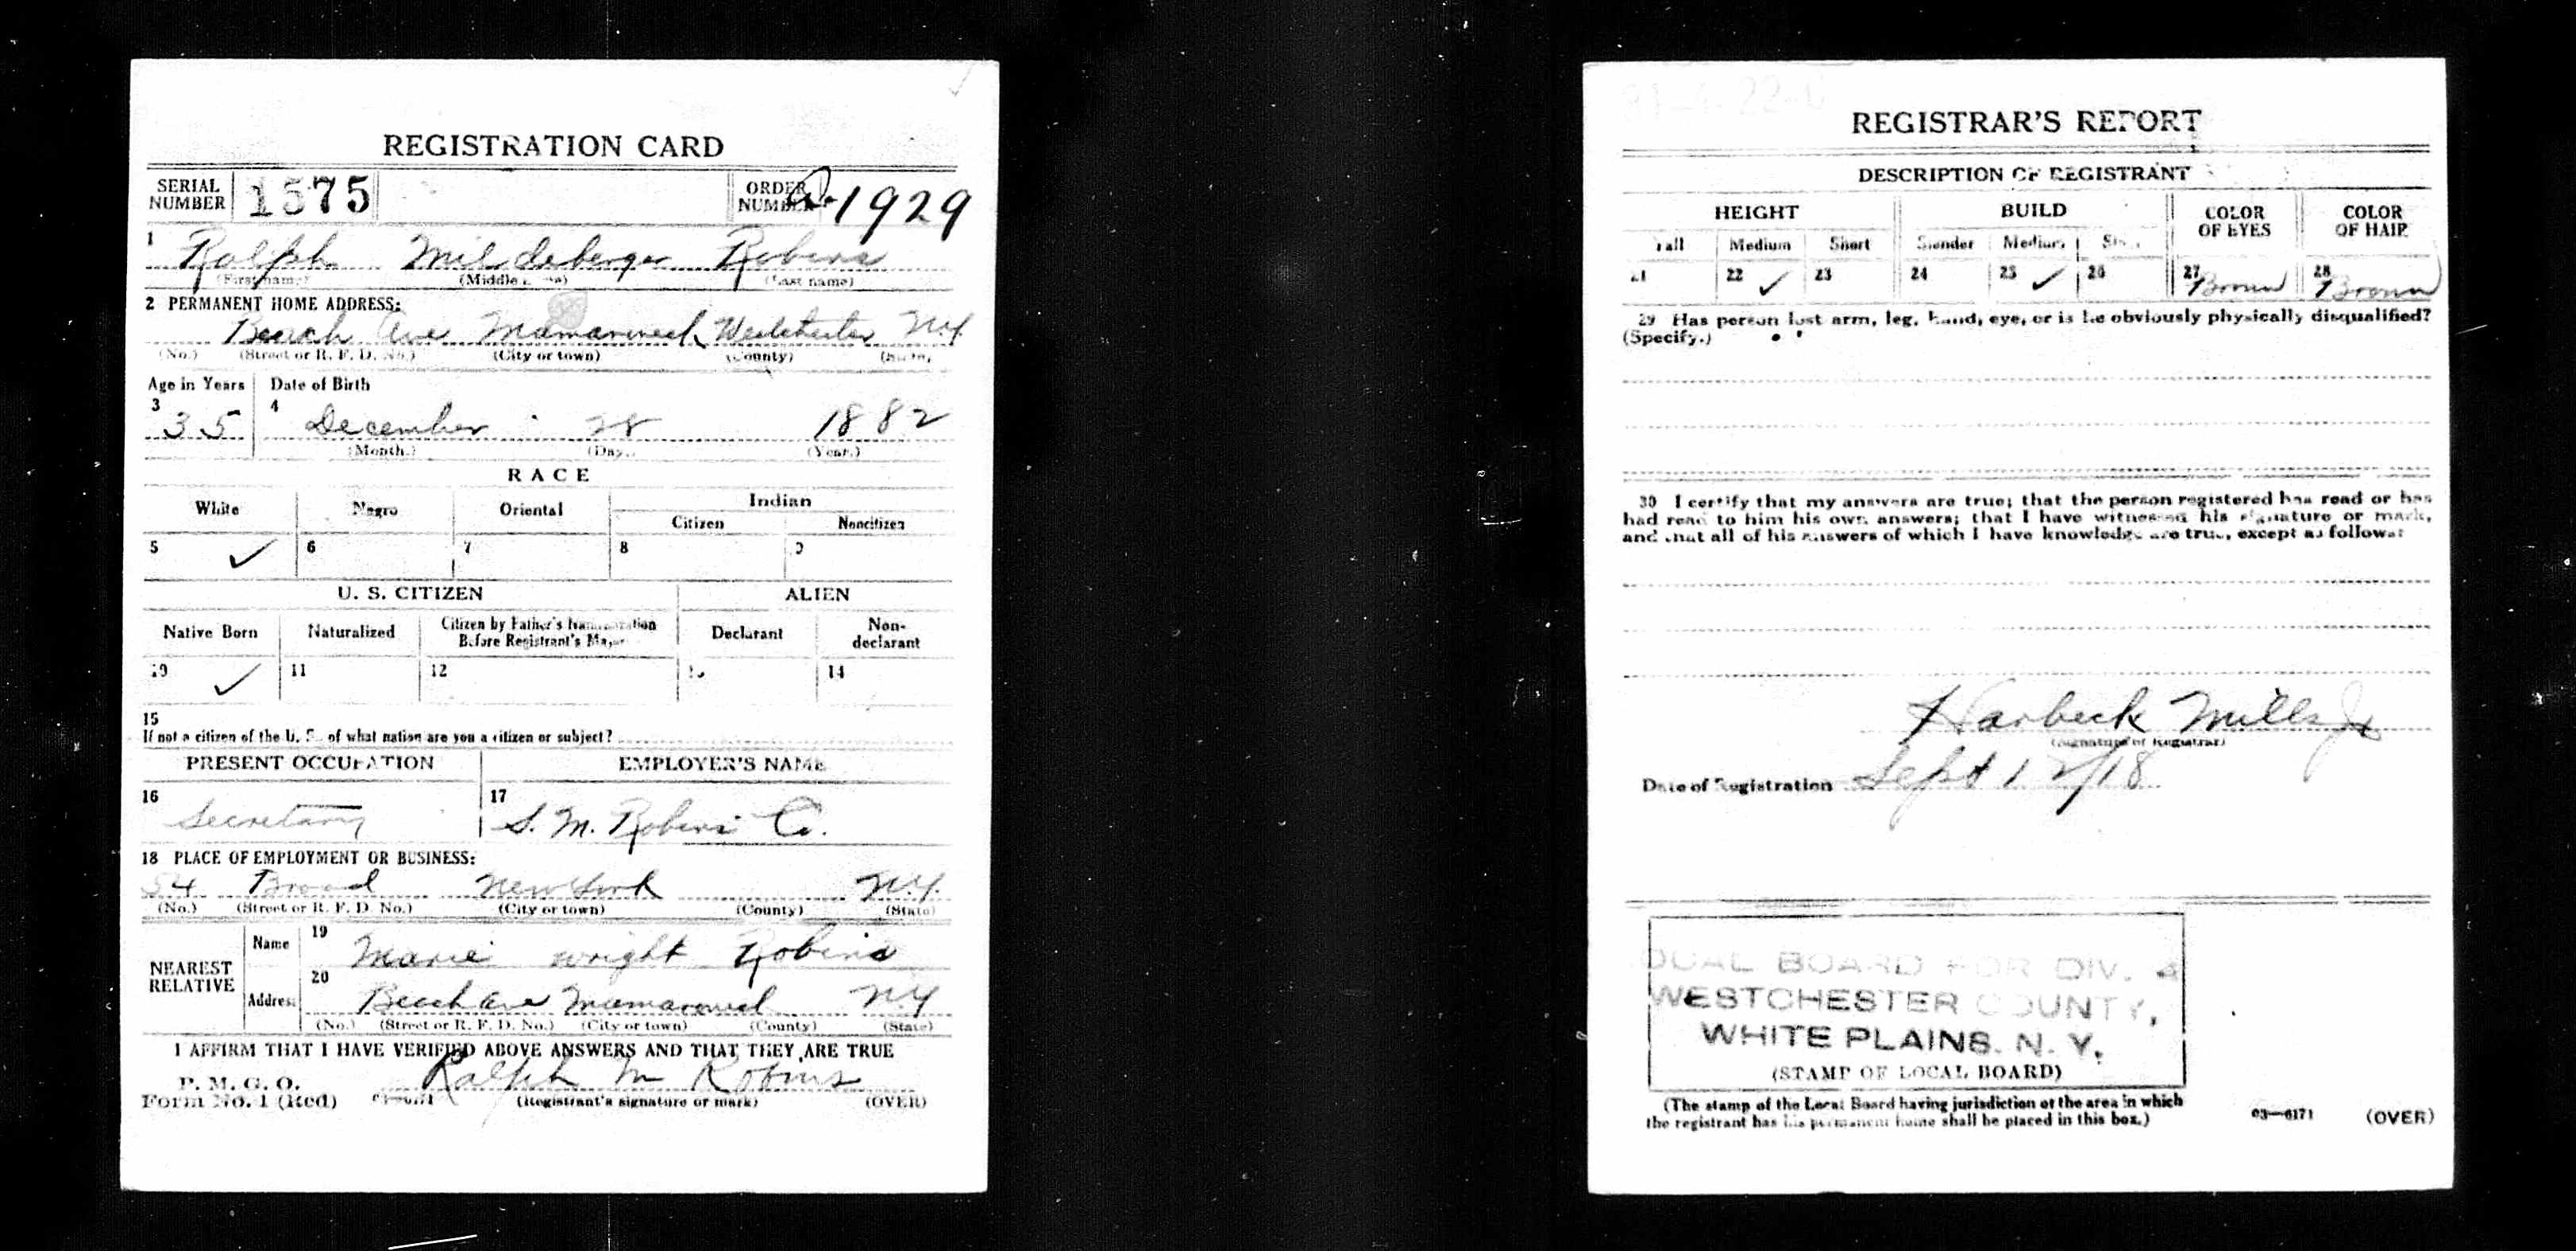 REGISTRATION CARD
SERIAL NUMBER 1575 ORDER NUMBER A-1929
1 Ralph Mildeberger Robins
(First name) (Middle name) (Last name)
2 PERMANENT HOME ADDRESS:
Beach Ave Mamaroneck Westchester N.Y
(No.) (Street or R. F. D. No.) (City or town) (County) (State)
Age in Years Date of Birth
3 35 4 December 28 1882
(Month.) (Day.) (Year.)
RACE
White Negro Oriental Indian
Citizen Noncitizen
5 ✓ 6 7 8 9
U. S. CITIZEN ALIEN
Native Born Naturalized Citizen by Father's Naturalization Before Registrant's Majority Declarant Non-declarant
10 ✓ 11 12 13 14
15
If not a citizen of the U. S., of what nation are you a citizen or subject?
PRESENT OCCUPATION EMPLOYER'S NAME
16 Secretary 17 S. M. Robins Co.
18 PLACE OF EMPLOYMENT OR BUSINESS:
54 Broad New York N.Y.
(No.) (Street or R. F. D. No.) (City or town) (County) (State)
NEAREST RELATIVE Name 19 Marie Wright Robins
Address 20 Beach Ave Mamaroneck N.Y
(No.) (Street or R. F. D. No.) (City or town) (County) (State)
I AFFIRM THAT I HAVE VERIFIED ABOVE ANSWERS AND THAT THEY ARE TRUE
P. M. G. O.
Form No. 1 (Red) Ralph M Robins
(Registrant's signature or mark) (OVER)
REGISTRAR'S REPORT
DESCRIPTION OF REGISTRANT
HEIGHT BUILD COLOR OF EYES COLOR OF HAIR
Tall Medium Short Slender Medium Stout
21 22 ✓ 23 24 25 ✓ 26 27 Brown 28 Brown
29 Has person lost arm, leg, hand, eye, or is he obviously physically disqualified?
(Specify.)
30 I certify that my answers are true; that the person registered has read or has
had read to him his own answers; that I have witnessed his signature or mark,
and that all of his answers of which I have knowledge are true, except as follows:
Harbeck Mills Jr
(Signature of Registrar)
Date of Registration Sept 12/18
LOCAL BOARD FOR DIV. 4
WESTCHESTER COUNTY,
WHITE PLAINS. N. Y.
(STAMP OF LOCAL BOARD)
(The stamp of the Local Board having jurisdiction of the area in which
the registrant has his permanent home shall be placed in this box.)
03—6171 (OVER)